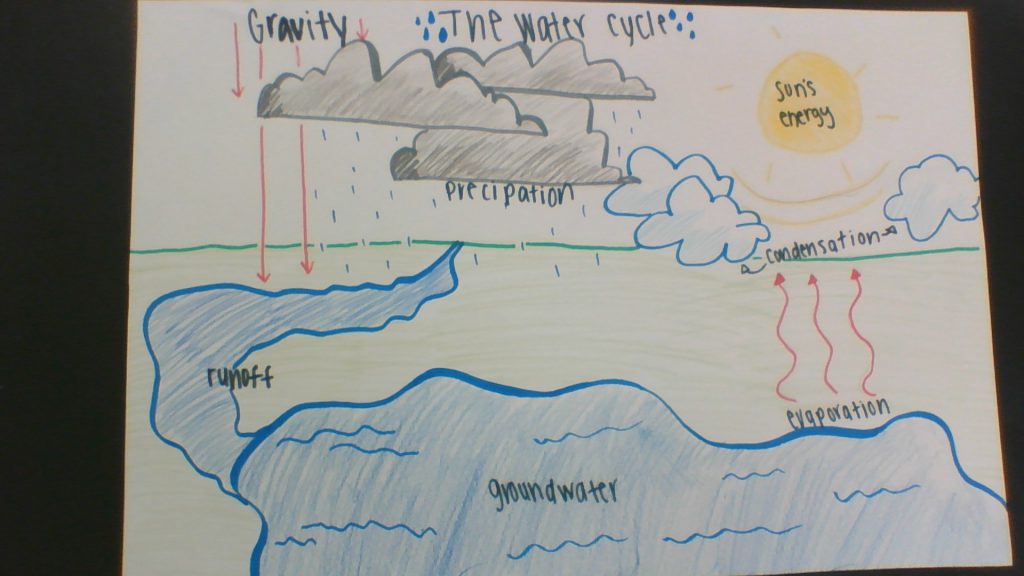 Gravity
The water cycle
sun's
energy
precipation
condensation
runoff
evaporation
groundwater